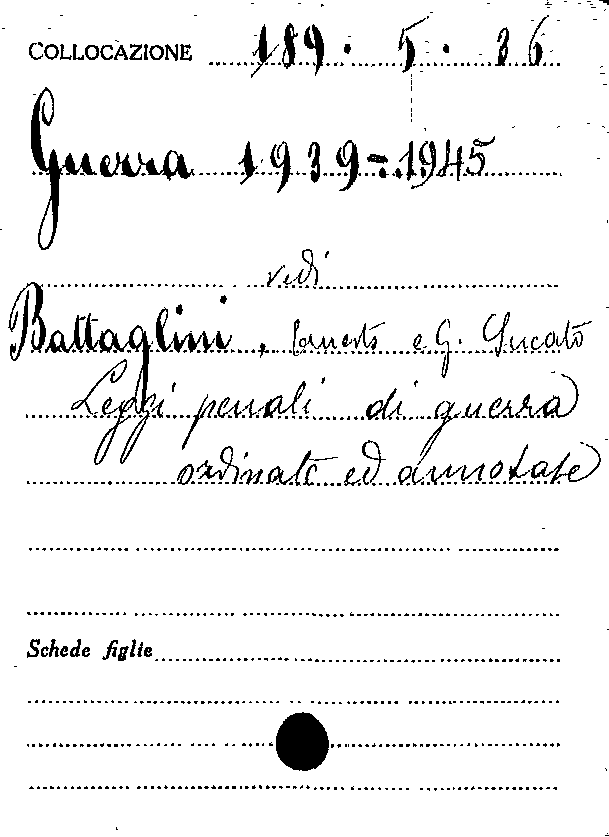 COLLOCAZIONE 189. 5. 36
Guerra 1939-1945
vedi
Battaglini, Ernesto e G. Sucato
Leggi penali di guerra
ordinate ed annotate
Schede figlie